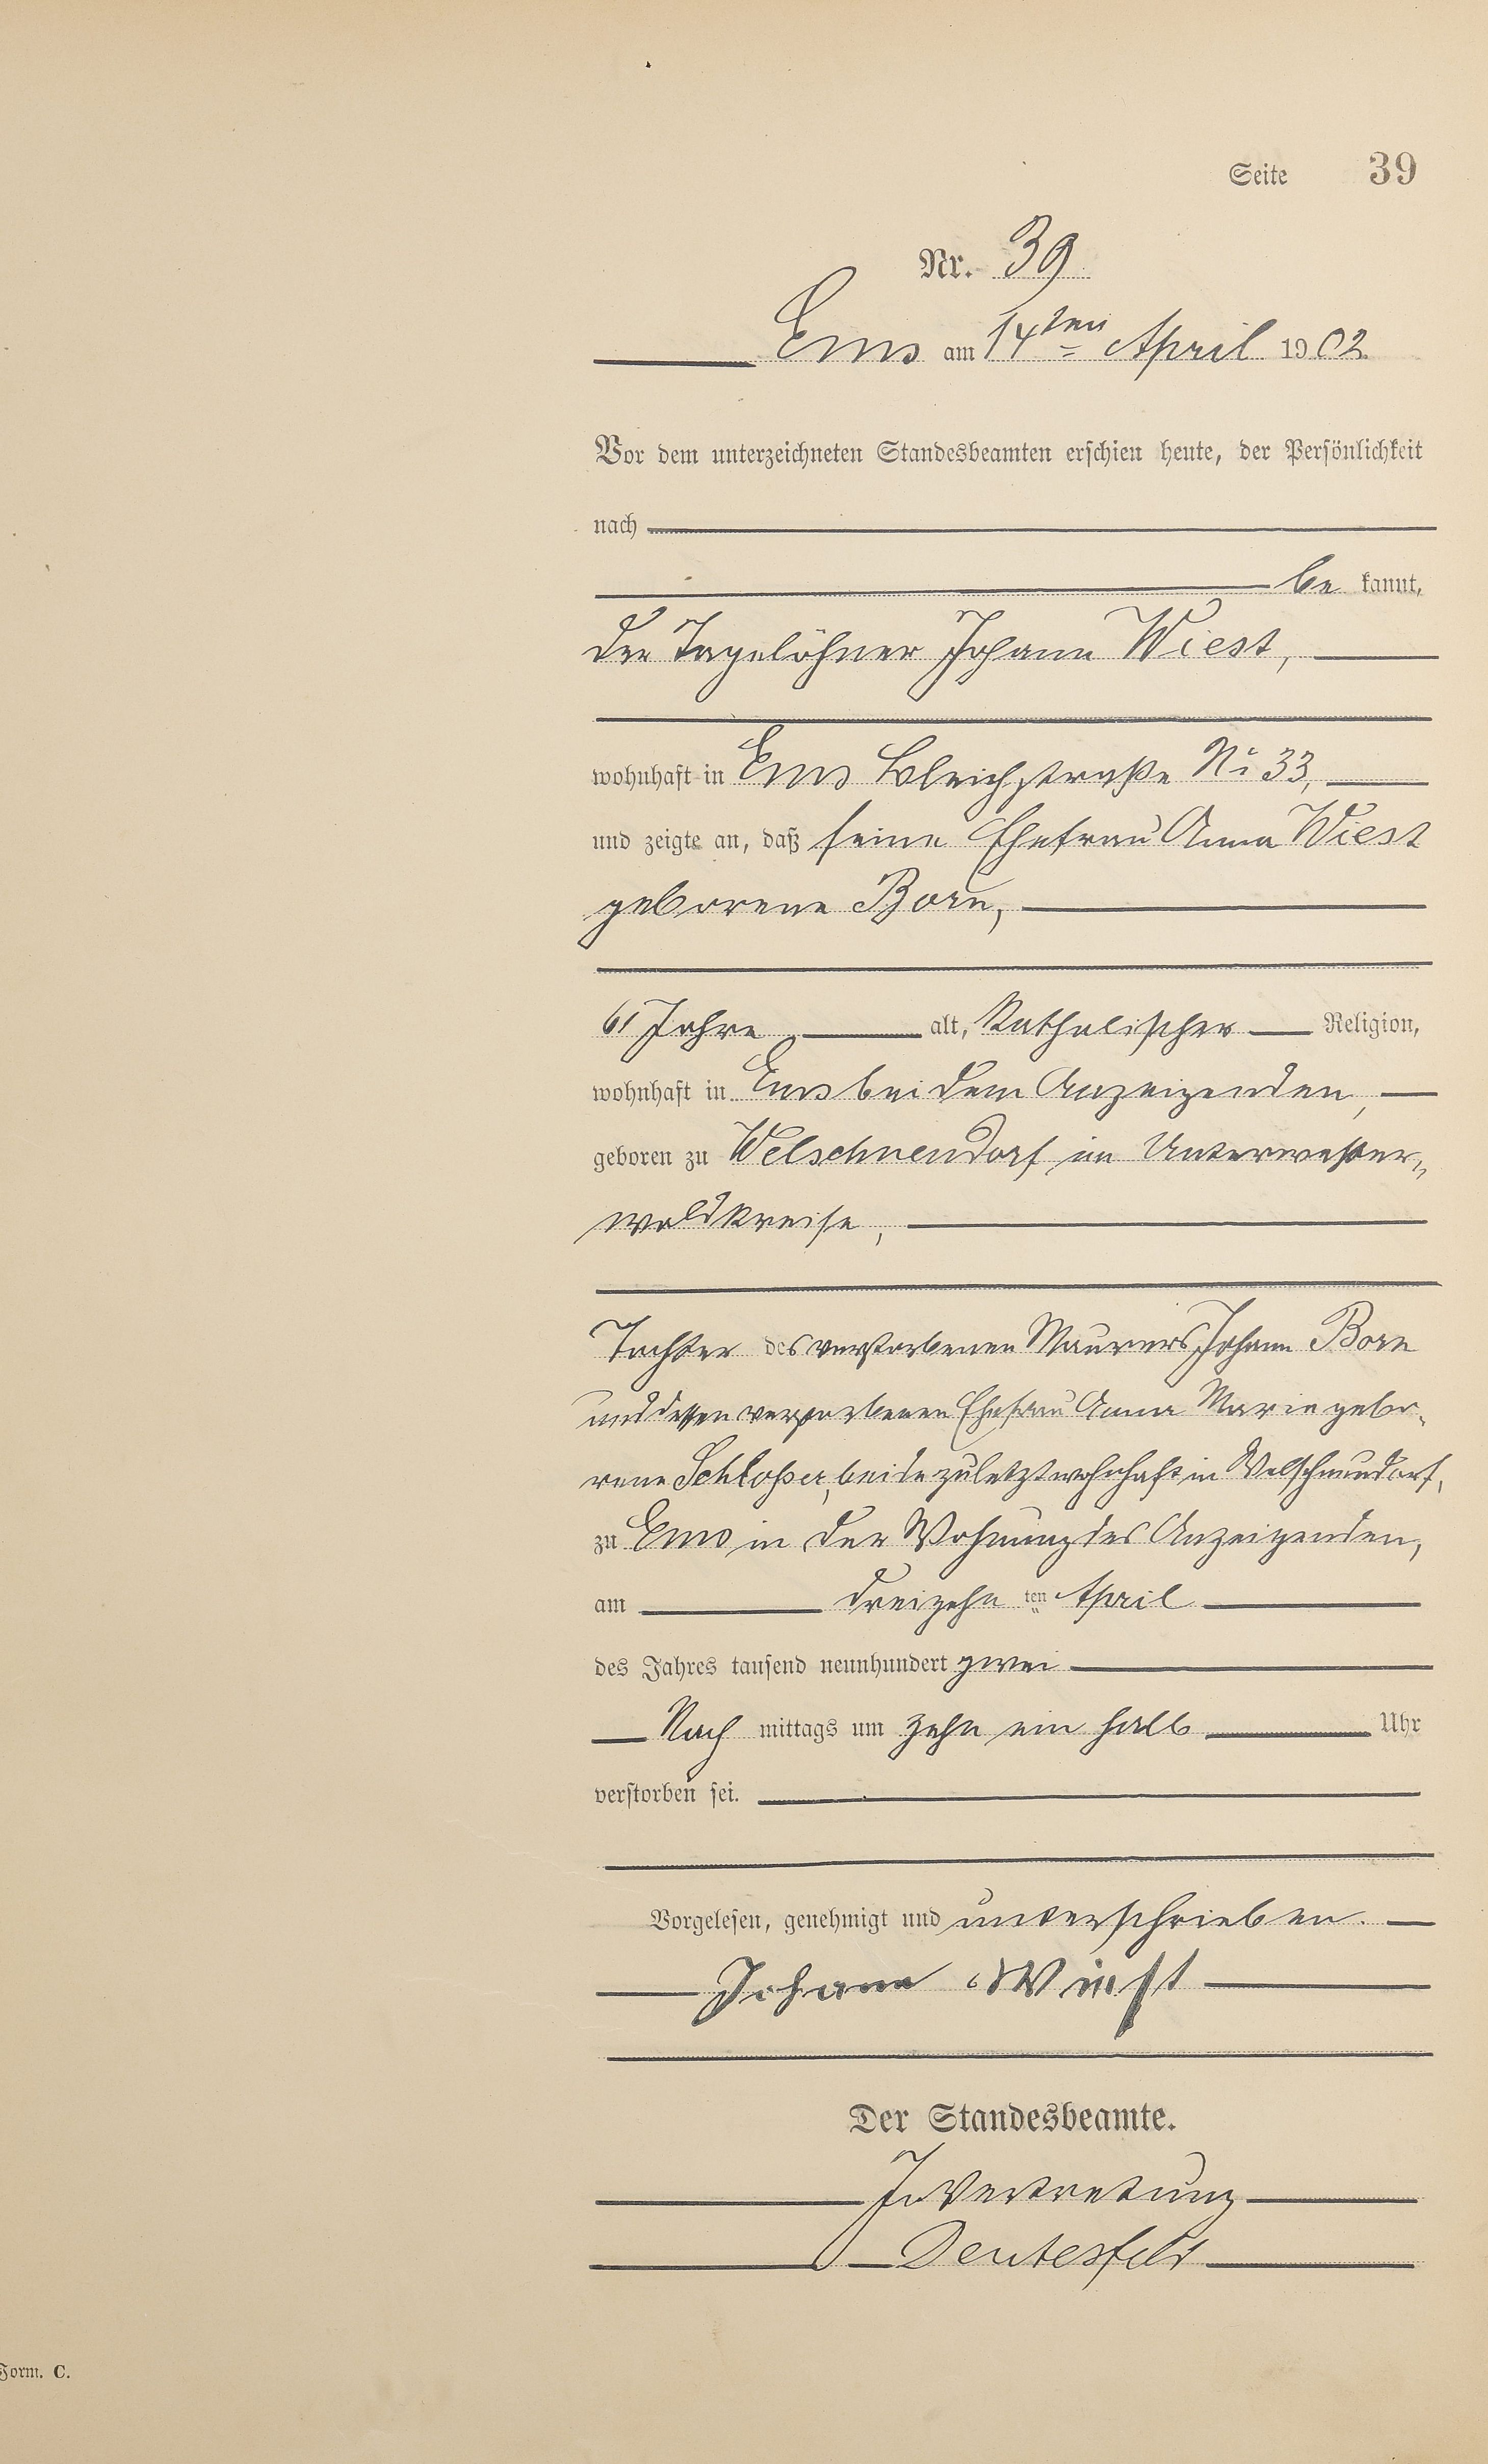 Seite 39
Nr. 39
Ems am 14ten April 1902
Vor dem unterzeichneten Standesbeamten erschien heute, der Persönlichkeit
nach
be kannt,
der Tagelöhner Johann Wiest,
wohnhaft in Ems Bleichstraße No 33,
und zeigte an, daß seine Ehefrau Anna Wiest
geborene Born,
61 Jahre alt, Katholischer Religion,
wohnhaft in Ems bei dem Anzeigenden,
geboren zu Welschneudorf im Unterwester„
waldkreise,
Tochter des verstorbenen Maurers Johann Born
und dessen verstorbenen Ehefrau Anna Maria gebo-
rene Schloßer, beide zuletzt wohnhaft in Welschneudorf,
zu Ems in der Wohnung des Anzeigenden,
am dreizehn ten April
des Jahres tausend neunhundert zwei
Nach mittags um zehn ein halb Uhr
verstorben sei.
Vorgelesen, genehmigt und unterschrieben.
Johann Wiest
Der Standesbeamte.
In Vertretung
Deutesfeld
Form. C.